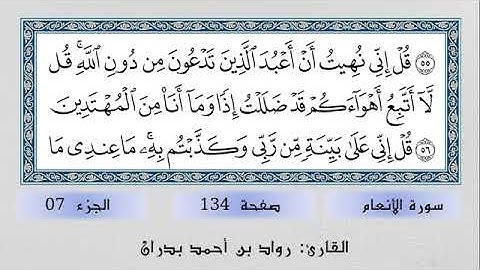 ٥٥ قُلْ إِنِّي نُهِيتُ أَنْ أَعْبُدَ الَّذِينَ تَدْعُونَ مِن دُونِ اللَّهِ ۚ قُل
لَّا أَتَّبِعُ أَهْوَاءَكُمْ قَدْ ضَلَلْتُ إِذًا وَمَا أَنَا۠ مِنَ الْمُهْتَدِينَ
٥٦ قُلْ إِنِّي عَلَىٰ بَيِّنَةٍ مِّن رَّبِّي وَكَذَّبْتُم بِهِ ۚ مَا عِندِي مَا
سورة الأنعام صفحة 134 الجزء 07
القارئ: رواد بن أحمد بدران